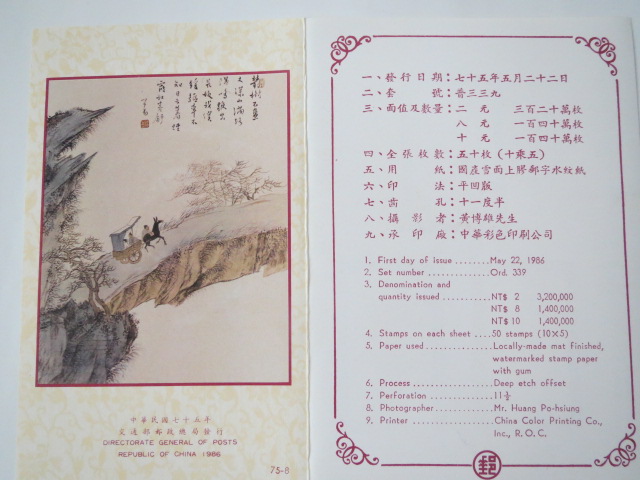 中華民國七十五年
交通部郵政總局發行
DIRECTORATE GENERAL OF POSTS
REPUBLIC OF CHINA 1986
75-8
一、發行日期：七十五年五月二十二日
二、套號：普三三九
三、面值及數量：二元 三百二十萬枚
八元 一百四十萬枚
十元 一百四十萬枚
四、全張枚數：五十枚（十乘五）
五、用紙：國產雪面上膠郵字水紋紙
六、印法：平凹版
七、齒孔：十一度半
八、攝影者：黃博雄先生
九、承印廠：中華彩色印刷公司
1. First day of issue ........ May 22, 1986
2. Set number .............. Ord. 339
3. Denomination and
quantity issued ........... NT$ 2 3,200,000
NT$ 8 1,400,000
NT$ 10 1,400,000
4. Stamps on each sheet .... 50 stamps (10×5)
5. Paper used ............... Locally-made mat finished,
watermarked stamp paper
with gum
6. Process .................. Deep etch offset
7. Perforation .............. 11½
8. Photographer ............. Mr. Huang Po-hsiung
9. Printer .................. China Color Printing Co.,
Inc., R. O. C.
郵